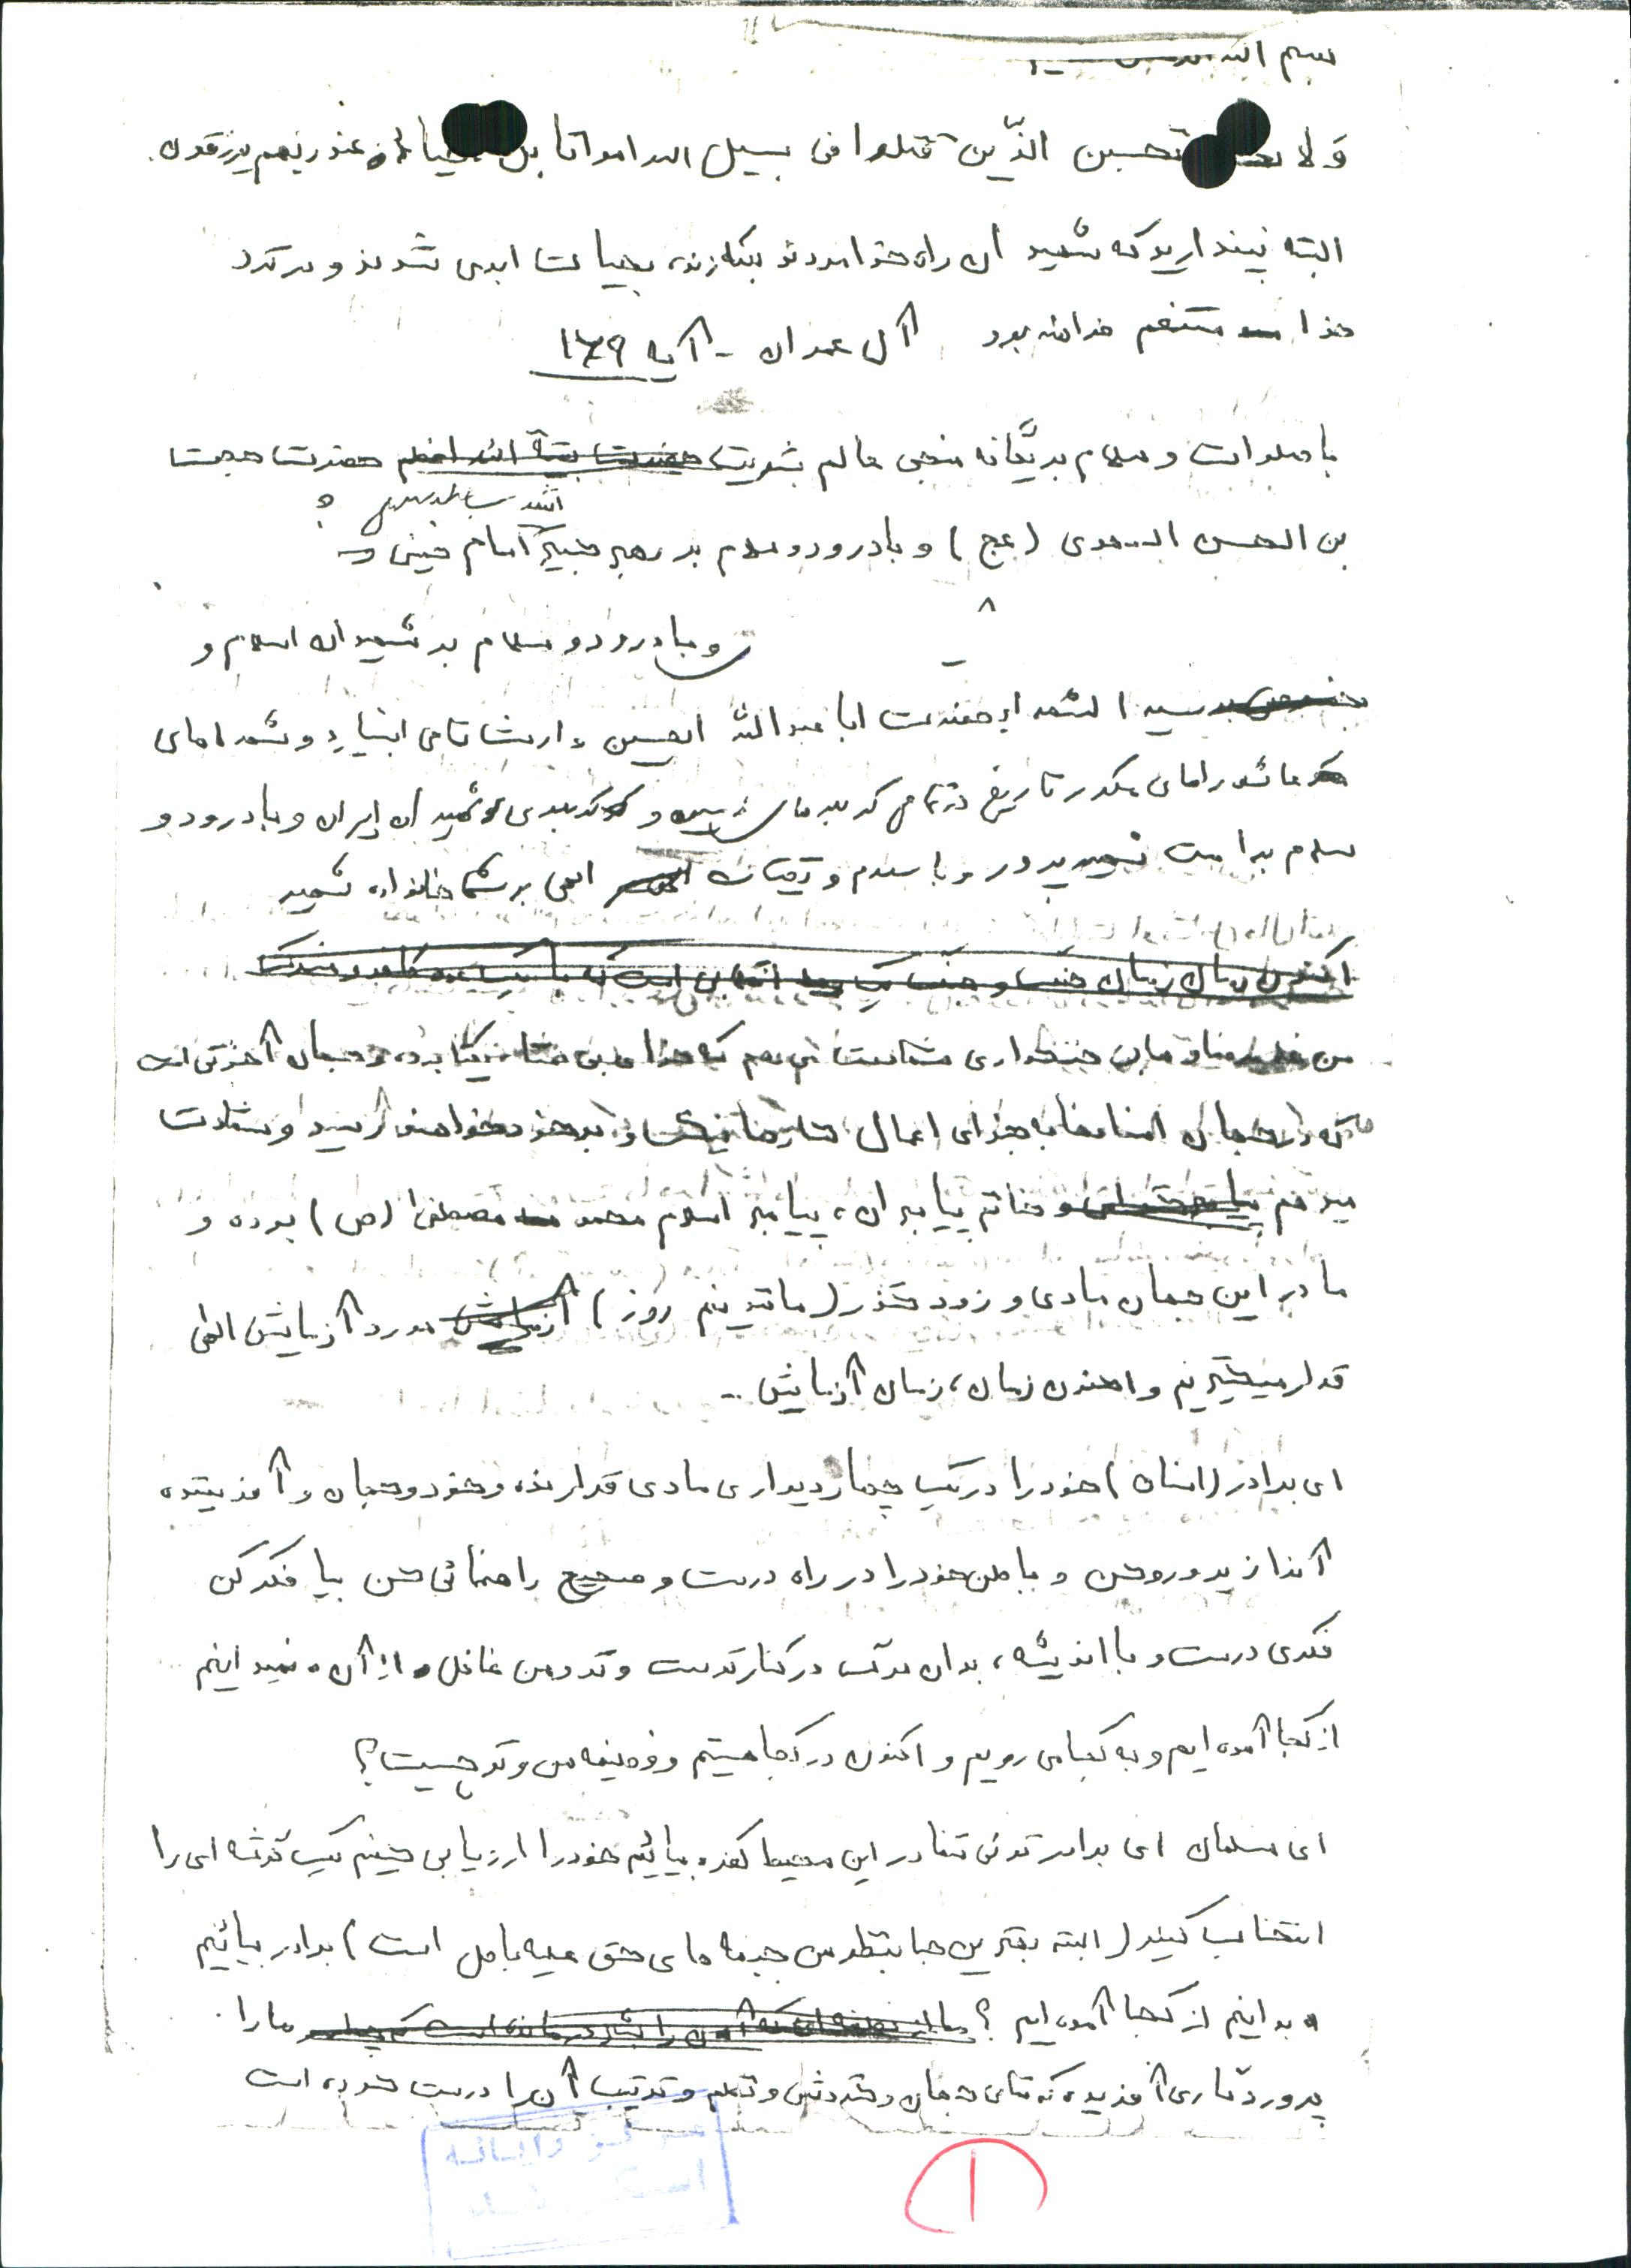 بسم الله
و لا تحسبن الذّین قتلوا فی سبیل الله امواتا بل احیاء عند ربهم یرزقون.
البته نپندارید که شهیدان راه خدا مردند بلکه زنده بحیات ابدی شدند و در نزد
خدا متنعم خواهند بود آل عمران - آیه ۱۶۹
با صلوات و سلام بر یگانه منجی عالم بشریت حضرت بقیة الله اعظم حضرت حجت
بن الحسن المهدی (عج) و با درود و سلام بر رهبر کبیر امام خمینی
و با درود و سلام بر شهیدان اسلام و
سید الشهداء حضرت ابا عبدالله الحسین وارث تمامی انبیاء و شهداهای
عاشوراهای مکرر تاریخ در تمامی کربلاهای زمین و کربلای شهیدان ایران و با درود و
سلام بر امت شهید پرور و با سلام و تحیات الهی بر شما خانواده شهید
اکنون زمان زمان جنگ و جنگ یک
من شهادت می دهم که خدا یکتا بوده و جهان آخرتی است
که در جهان انسانها به جزای اعمال خود خواهند رسید و شهادت
میدهم و خاتم پیامبران، پیامبر اسلام محمد مصطفی (ص) بوده و
ما در این جهان مادی و زود گذر (مانند نیم روز) آزمایش مورد آزمایش الهی
قرار میگیریم و اکنون زمان، زمان آزمایش ..
ای برادر (انسان) خود را در یک چهار دیواری مادی قرار نده و خود و جهان و آفریننده
آنرا از یاد و با من خود را در راه درست و صحیح راهنمائی کن بیا فکر کن
فکری درست و با اندیشه، بدان مرگ در کنار توست و تو و من غافل از آن. نمیدانیم
از کجا آمده ایم و به کجا می رویم و اکنون در کجا هستیم و وظیفه من و تو چیست؟
ای مسلمان ای برادر توئی تنها در این محیط بیائیم خود را ارزیابی کنیم یک گوشه ای را
انتخاب کنید (البته بهترین جا بنظر من جبهه های حق علیه باطل است) برادر بیائیم
بدانیم از کجا آمده ایم؟ ما را
پروردگاری آفریده که تمامی جهان و گردش و نظم و ترتیب آن را درست کرده است
۱